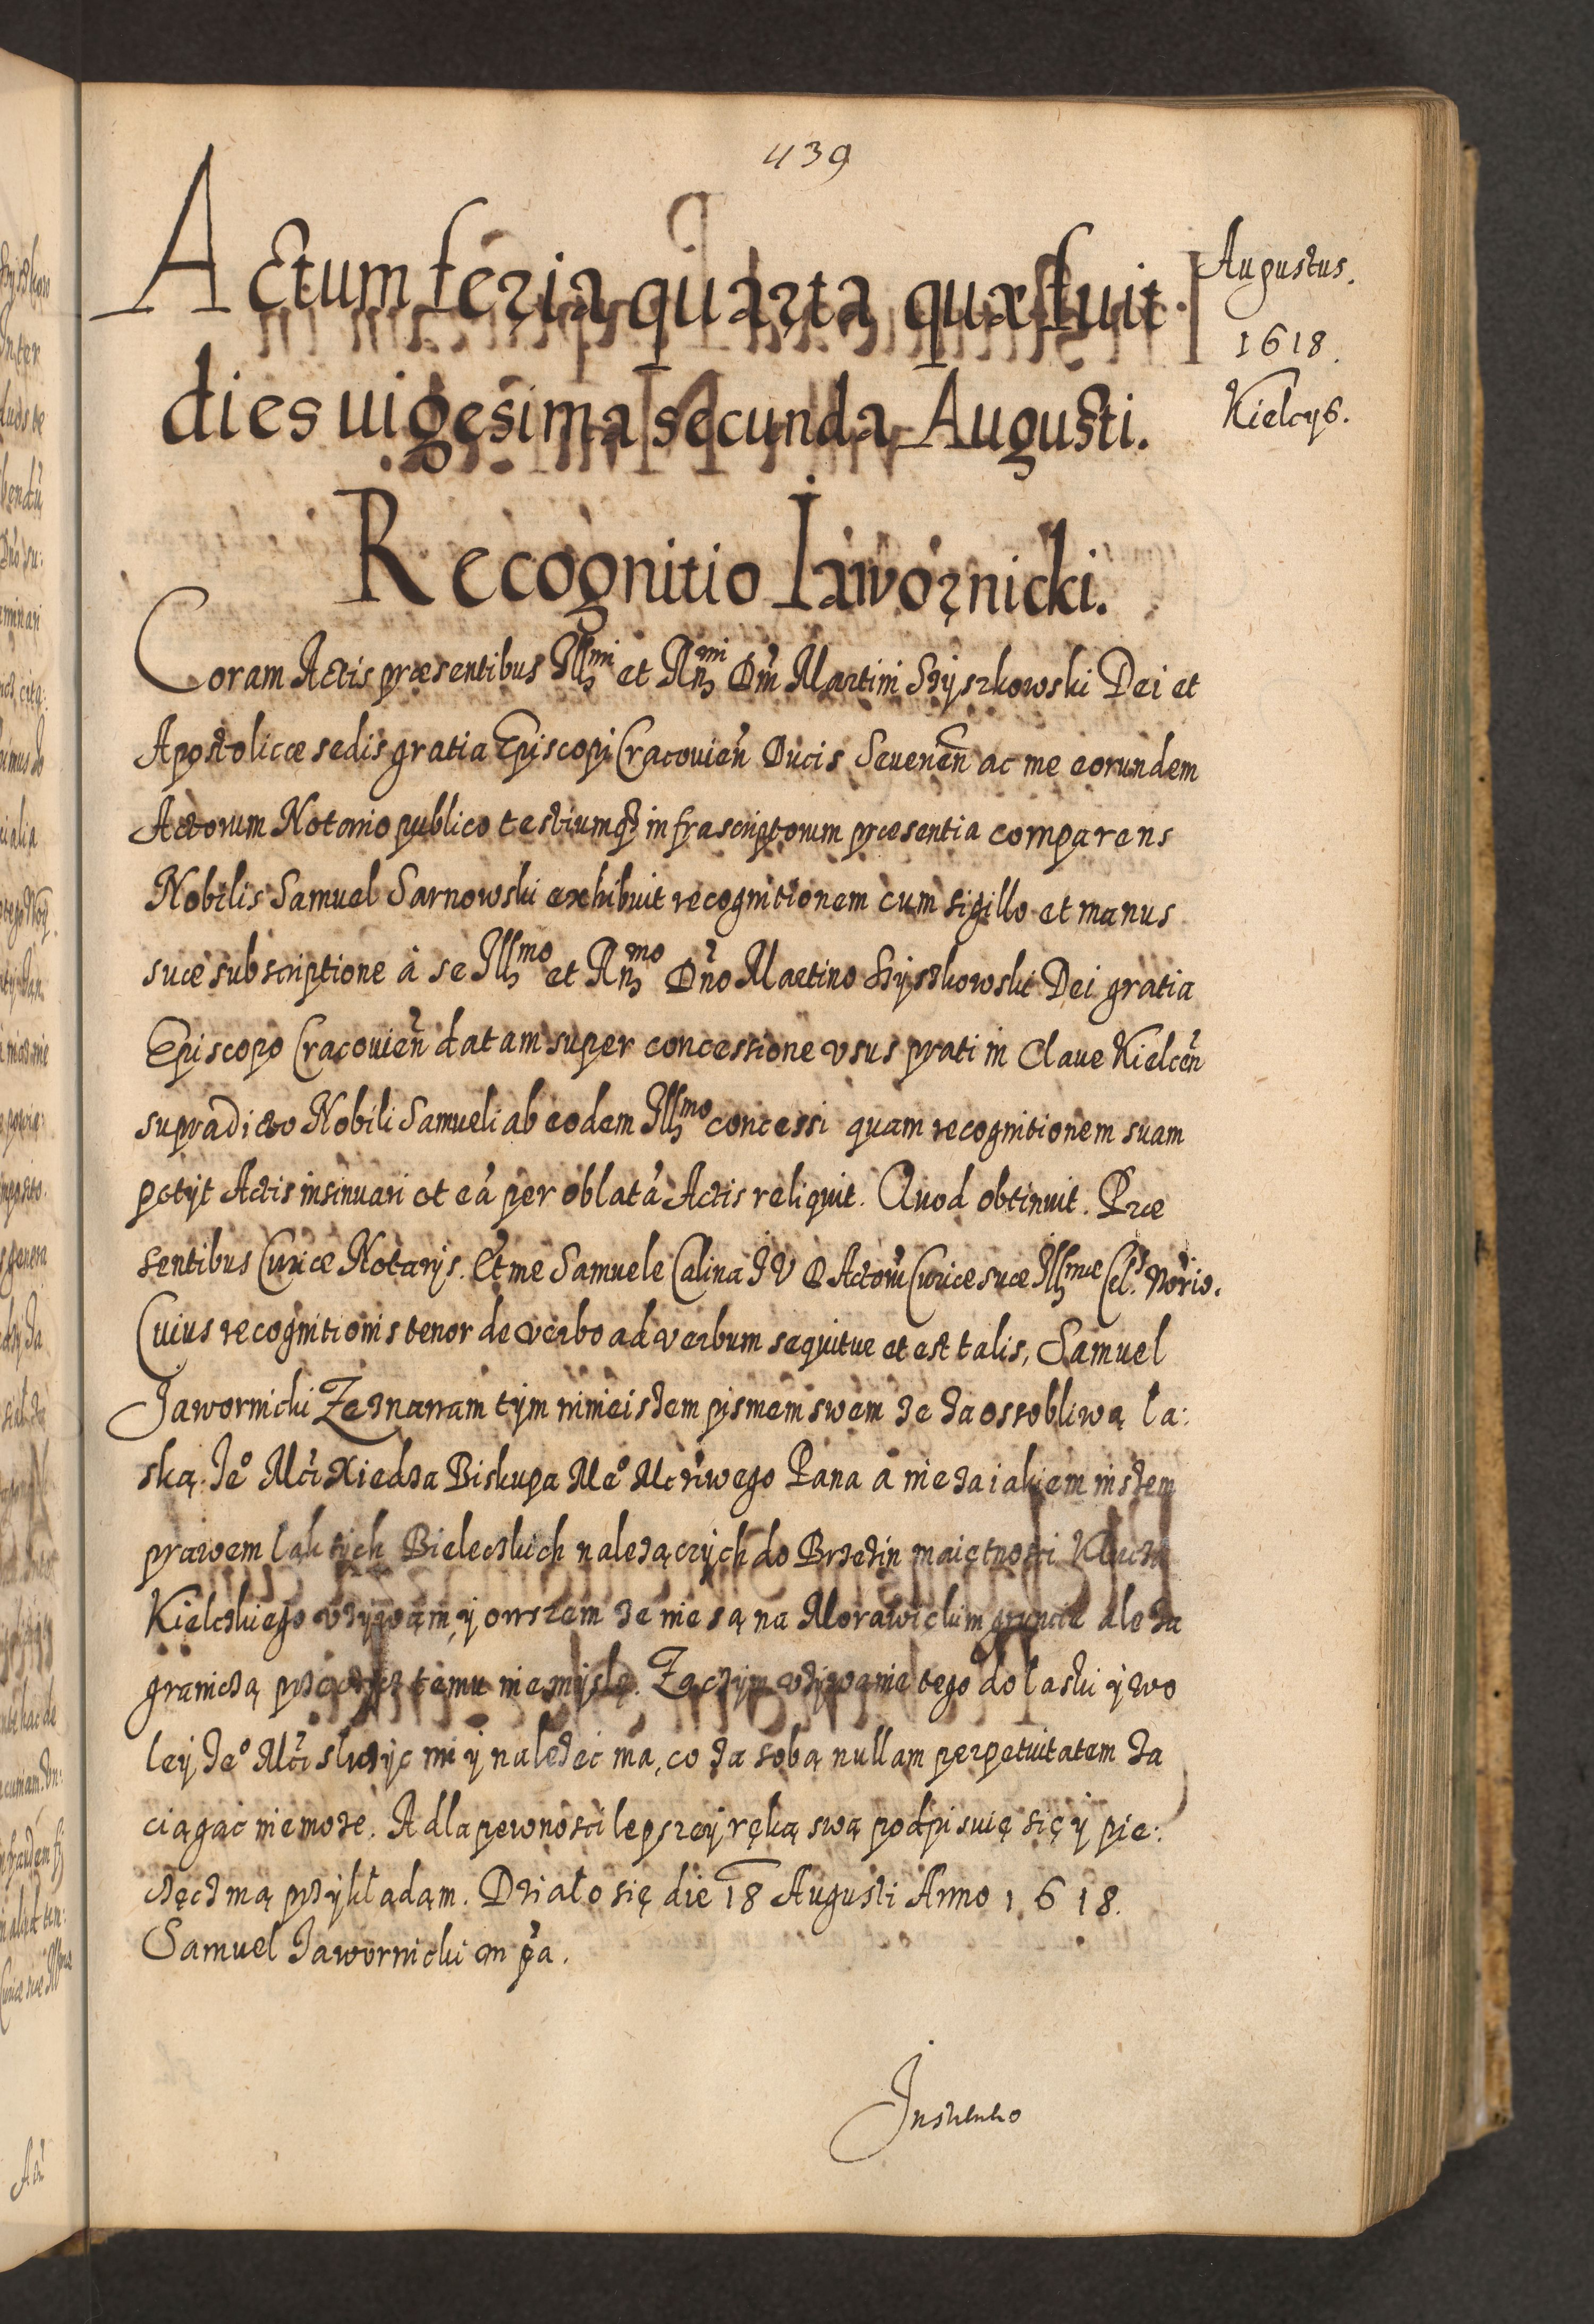 439
Actum feria quarta quæ fuit
dies uigesima secunda Augusti.
Augustus.
1618.
Kielcys.
Recognitio Iawornicki.
Coram Actis præsentibus Illmi et Rmi Dni Martini Szyszkowski Dei et
Apostolicæ sedis gratia Episcopi Cracouien Ducis Seuerien ac me eorundem
Actorum Notario publico testiumq infrascriptorum præsentia comparens
Nobilis Samuel Sarnowski exhibuit recognitionem cum sigillo et manus
suæ subscriptione à se Illmo et Rmo Dno Martino Szyszkowski Dei gratia
Episcopo Cracouien datam super concessione vsus prati in Claue Kielcen
supradicto Nobili Samueli ab eodem Illmo concessi quam recognitionem suam
petijt Actis insinuari et eã per oblatã Actis reliquit. Quod obtinuit. Præ
sentibus Curiæ Notarijs. Et me Samuele Calina I V D Actorũ Curiæ suæ Illmæ Cel. Norio.
Cuius recognitionis tenor de verbo ad verbum sequitur et est talis, Samuel
Jawornicki Zeznawam tym ninieiszem pismem swem ze za ossobliwą la:
ską Je° Mci Xiedza Biskupa Me° Mciwego Pana a nie za iakiem inszem
prawem ląk tych Bieleckich nalezączych do Brzezin maiętnosci Klucza
Kielczkiego vzywam, y owszem ze nie są na Morawickim gruncie ale za
granicą przeczyc temu nie myslę. Zaczym vzywanie tego do laski y wo
ley Je° Mci sluzyc mi y nalezec ma, co za sobą nullam perpetuitatem za
ciągac niemoze. A dla pewnosci lepszey ręką swą podpisuię się y pie:
częcz mą przykładam. Działo się die 18 Augusti Anno 1618.
Samuel Jawornicki m pa.